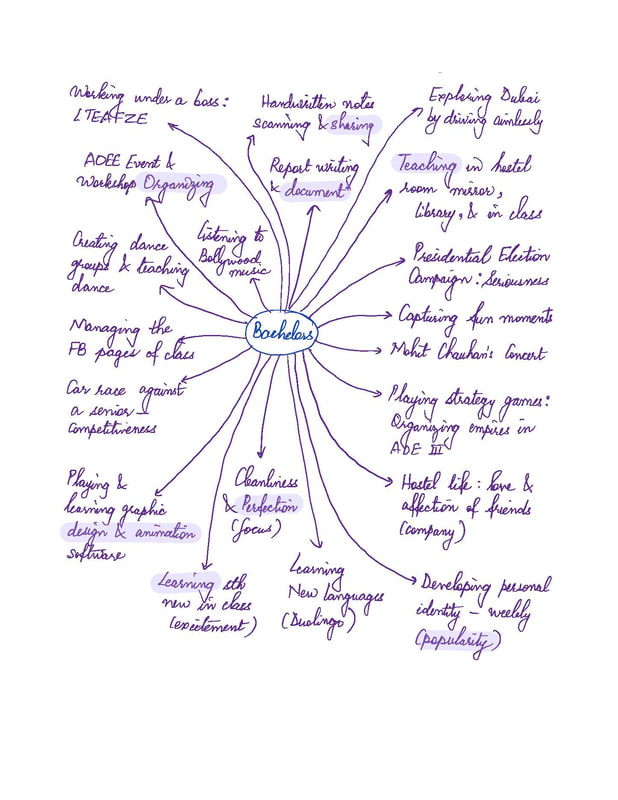 Working under a boss:
LTEAFZE
Handwritten notes
scanning & sharing
Exploring Dubai
by driving aimlessly
ADEE Event &
Workshop Organizing
Report writing
& document
Teaching in hostel
room mirror,
library, & in class
Listening to
Bollywood
music
Creating dance
groups & teaching
dance
Presidential Election
Campaign: Seriousness
Managing the
FB pages of class
Bachelors
Capturing fun moments
Mohit Chauhan's Concert
Car race against
a senior –
competitiveness
Playing strategy games:
Organizing empires in
AOE III
Playing &
learning graphic
design & animation
software
Cleanliness
& Perfection
(focus)
Hostel life: love &
affection of friends
(company)
Learning sth
new in class
(excitement)
Learning
New languages
(Duolingo)
Developing personal
identity –
(popularity)